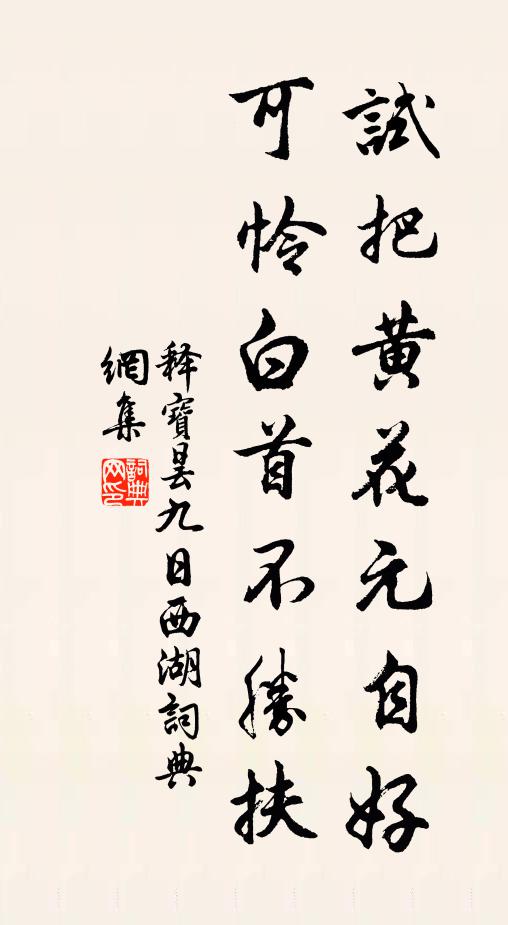 試把黄花元自好
可怜白首不勝扶
釋寶曇九日西湖詞典
網集
詞典网印